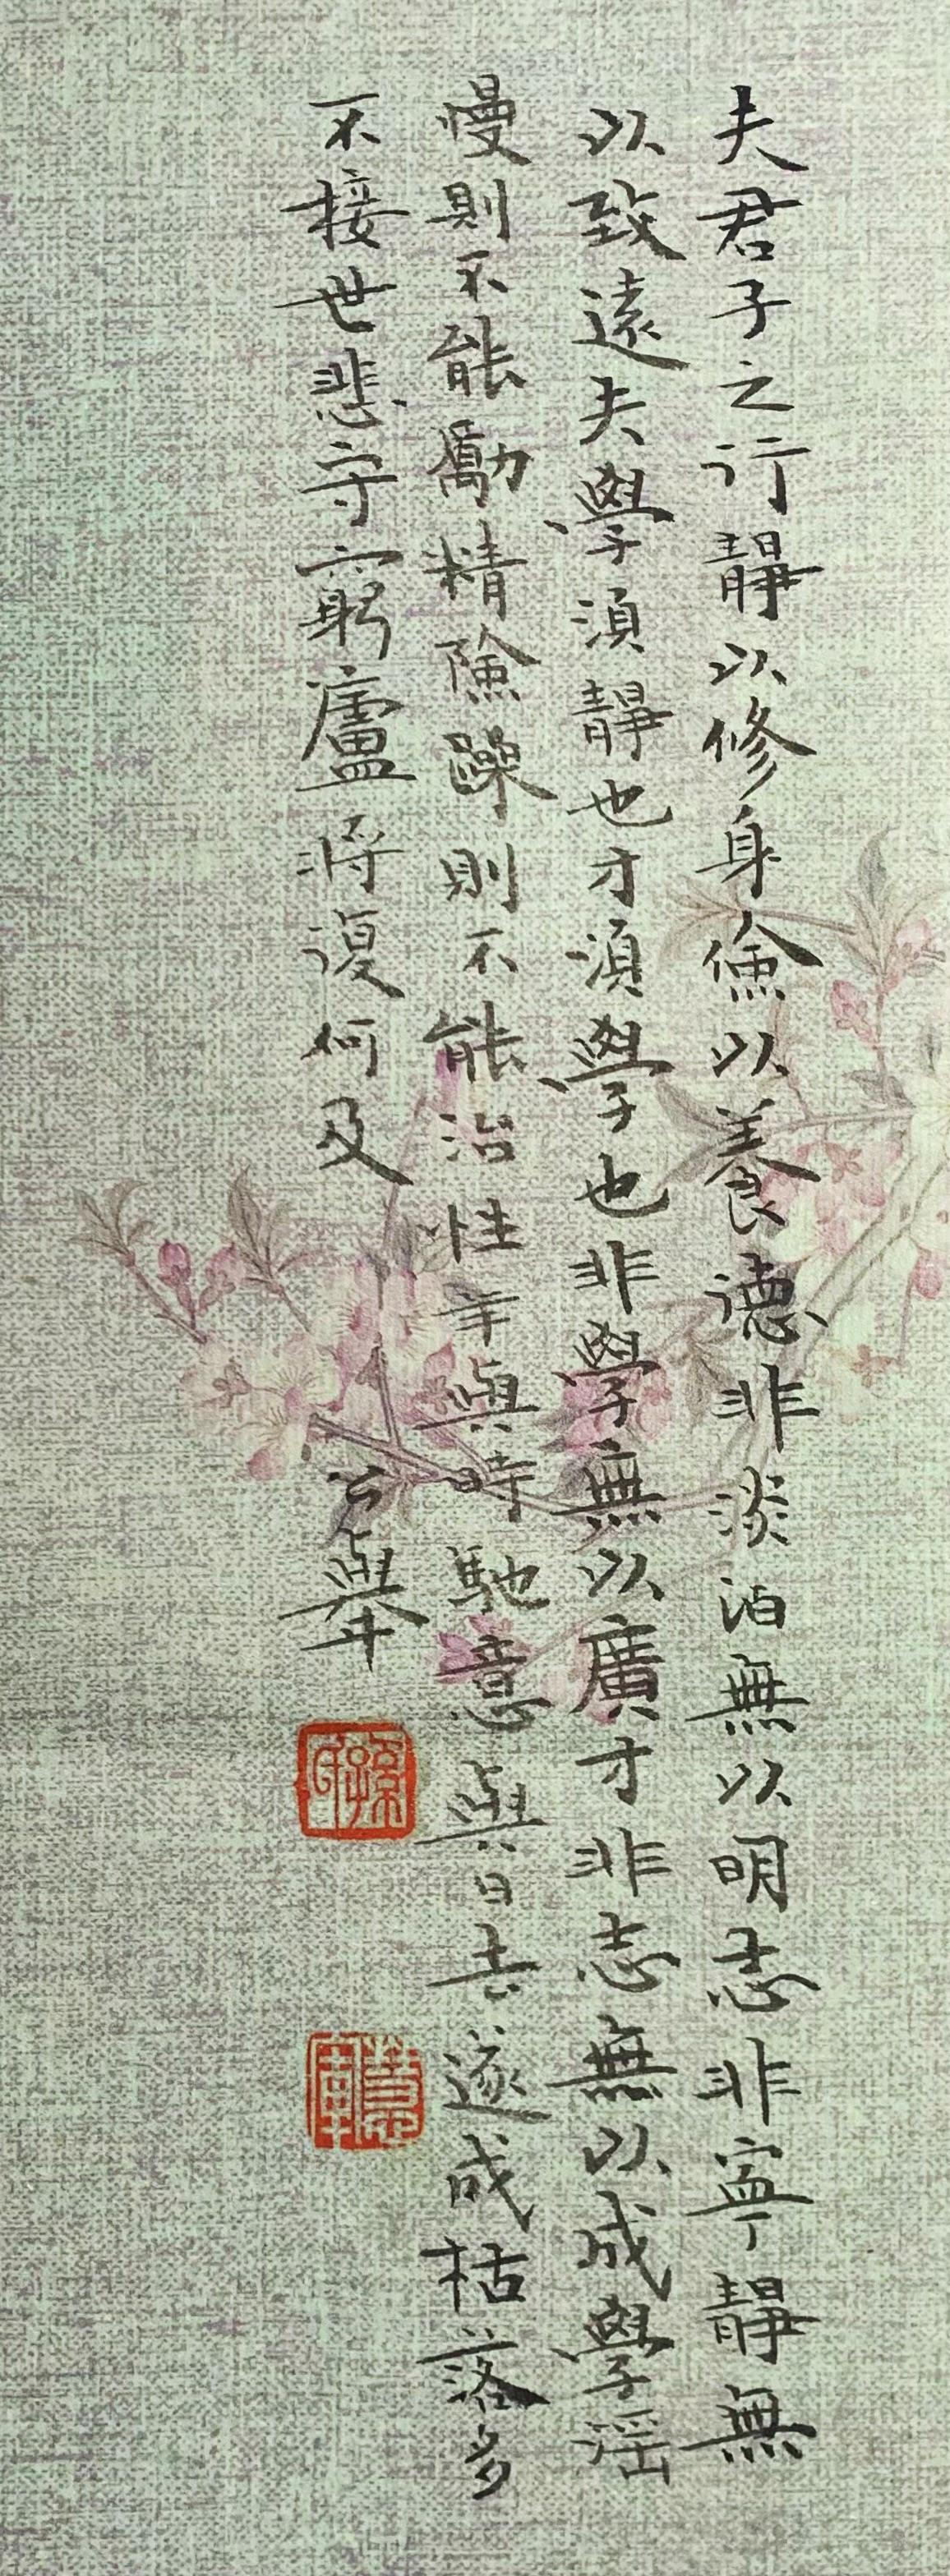 夫君子之行靜以修身儉以養德非淡泊無以明志非寧靜無
以致遠夫學須靜也才須學也非學無以廣才非志無以成學淫
慢則不能勵精險躁則不能治性年與時馳意與日去遂成枯落多
不接世悲守窮廬將復何及
公舉